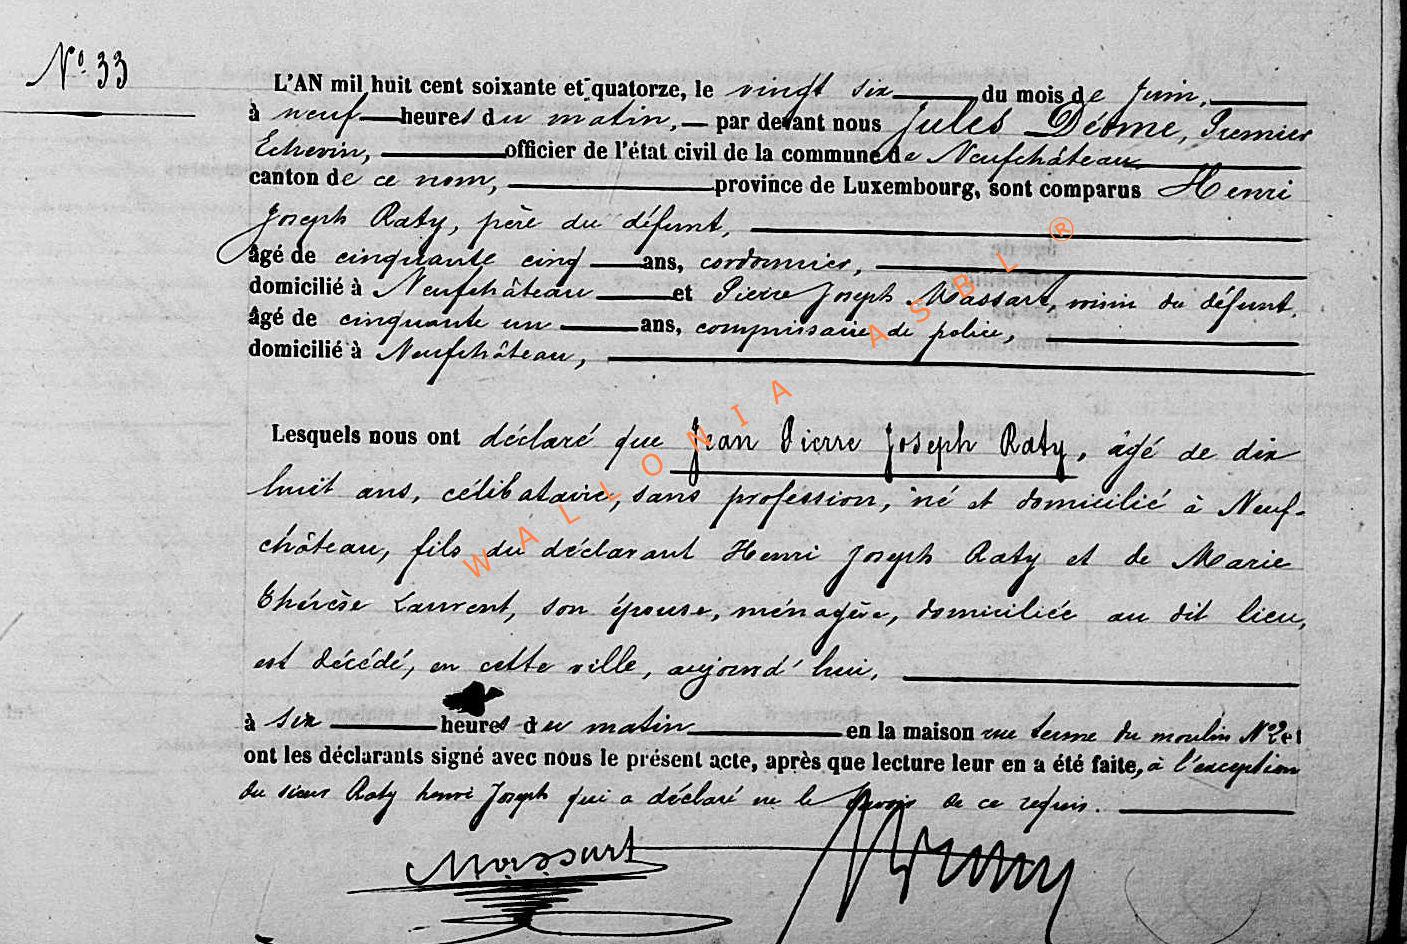 N° 33
L'AN mil huit cent soixante et quatorze, le vingt six du mois de Juin,
à neuf heures du matin, par devant nous Jules Déome, Premier
Echevin, officier de l'état civil de la commune de Neufchâteau
canton de ce nom, province de Luxembourg, sont comparus Henri
Joseph Raty, père du défunt,
âgé de cinquante cinq ans, cordonnier,
domicilié à Neufchâteau et Pierre Joseph Massart, du défunt.
âgé de cinquante un ans, commissaire de police,
domicilié à Neufchâteau,
Lesquels nous ont déclaré que Jean Pierre Joseph Raty, âgé de dix
huit ans, célibataire, sans profession, né et domicilié à Neuf-
château, fils du déclarant Henri Joseph Raty et de Marie
Thérèse Laurent, son épouse, ménagère, domiciliée au dit lieu,
est décédé, en cette ville, aujourd'hui,
à six heures du matin en la maison rue terme du moulin N° 2 et
ont les déclarants signé avec nous le présent acte, après que lecture leur en a été faite, à l'exception
du sieur Raty henri Joseph qui a déclaré ne le savoir de ce requis.
Massart
WALLONIA ASBL ®